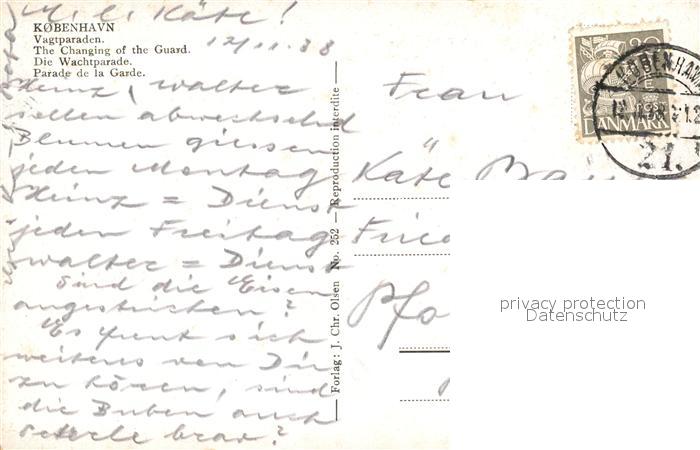 M. l. Käte!
KØBENHAVN
Vagtparaden.
The Changing of the Guard.
Die Wachtparade.
Parade de la Garde.
12/11.38
Heinz, Walter
sollen abwechselnd
Blumen giessen
jeden Montag
Heinz = Dienst
jeden Freitag
Walter = Dienst
Sind die Eisen
angestrichen?
Es freut sich
weiteres von Dir
zu hören, sind
die Buben auch
brav?
Forlag: J. Chr. Olsen No. 252 — Reproduction interdite
Frau
Käte
DANMARK
privacy protection
Datenschutz